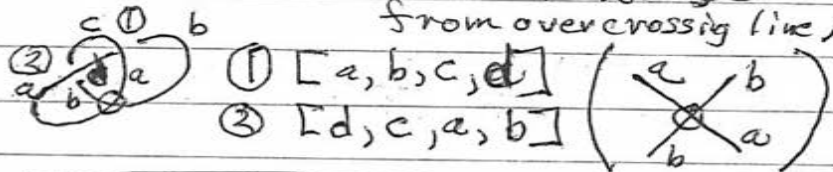 from overcrossig line,
c ① b
② a d a
b
① [a, b, c, d]
② [d, c, a, b]
a b
b a